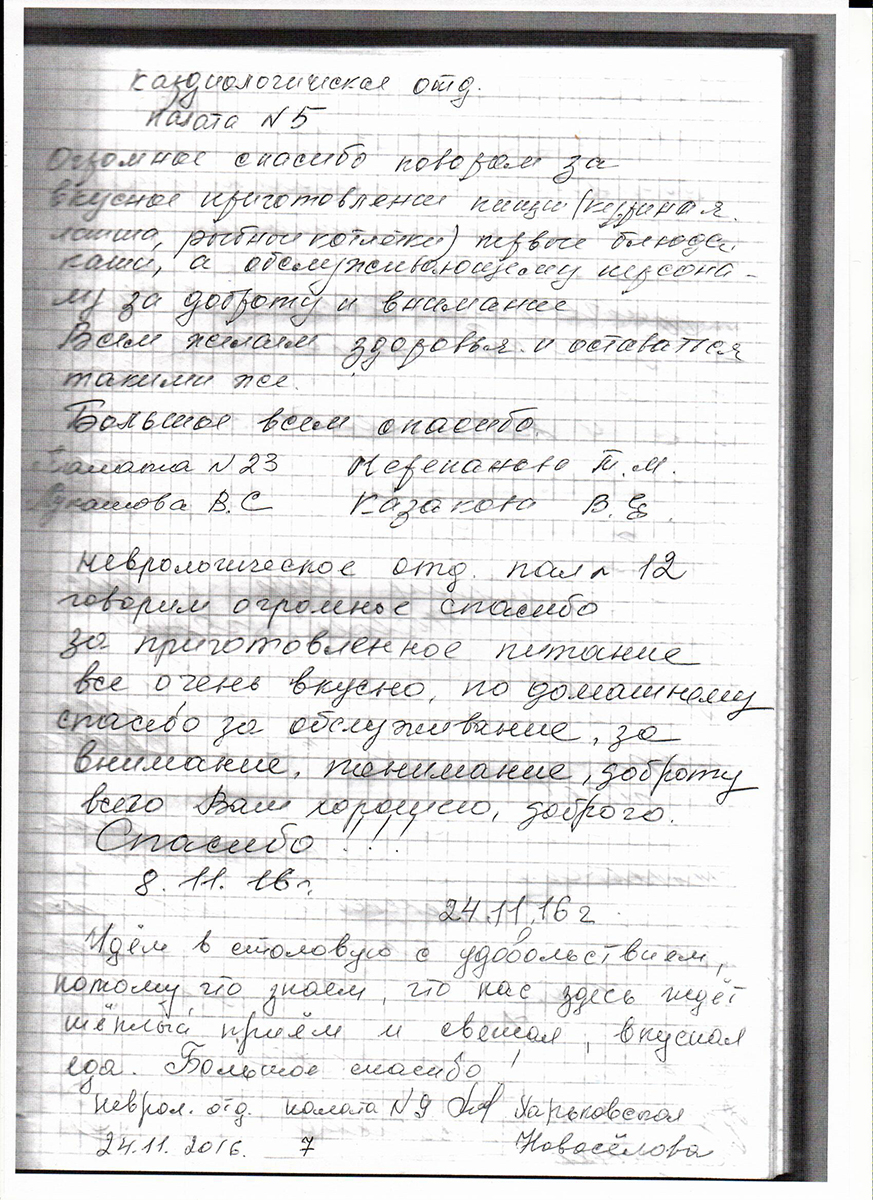 Кардиологическая отд.
Палата N 5
Огромное спасибо поворам за
вкусное приготовление пищи (куриная
лапша, рыбные котлетки) первые блюда,
каши, а обслуживающему персона-
лу за доброту и внимание
Всем желаем здоровья и оставаться
такими же.
Большое всем спасибо.
Палата N 23 Черепанова Т.М.
Лукашова В.С Казакова В.
неврологическое отд. пал N 12
говорим огромное спасибо
за приготовленное питание
все очень вкусно, по домашнему
спасибо за обслуживание, за
внимание, понимание, доброту
всего Вам хорошего, доброго.
Спасибо!!!
8.11.16г.
24.11.16г
Идём в столовую с удовольствием,
потому что знаем, что нас здесь ждёт
тёплый приём и свежая, вкусная
еда. Большое спасибо!
Неврол. отд. палата N 9 Харьковская
24.11.2016. 7 Новосёлова